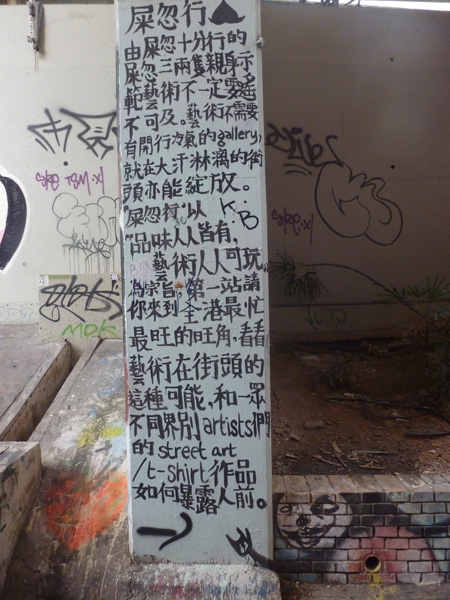 屎忽行
由屎忽十分行的
屎忽三兩隻親身示
範藝術不一定要遙
不可及。藝術不需要
有開行冷氣的gallery,
就在大汗淋漓的街
頭亦能綻放。
屎忽行以 K.B
"品味人人皆有,
藝術人人可玩"
為宗旨,第一站請
你來到全港最忙
最旺的旺角,看看
藝術在街頭的
這種可能,和一眾
不同界別artists們
的street art
/t-shirt作品
如何暴露人前。
MDK